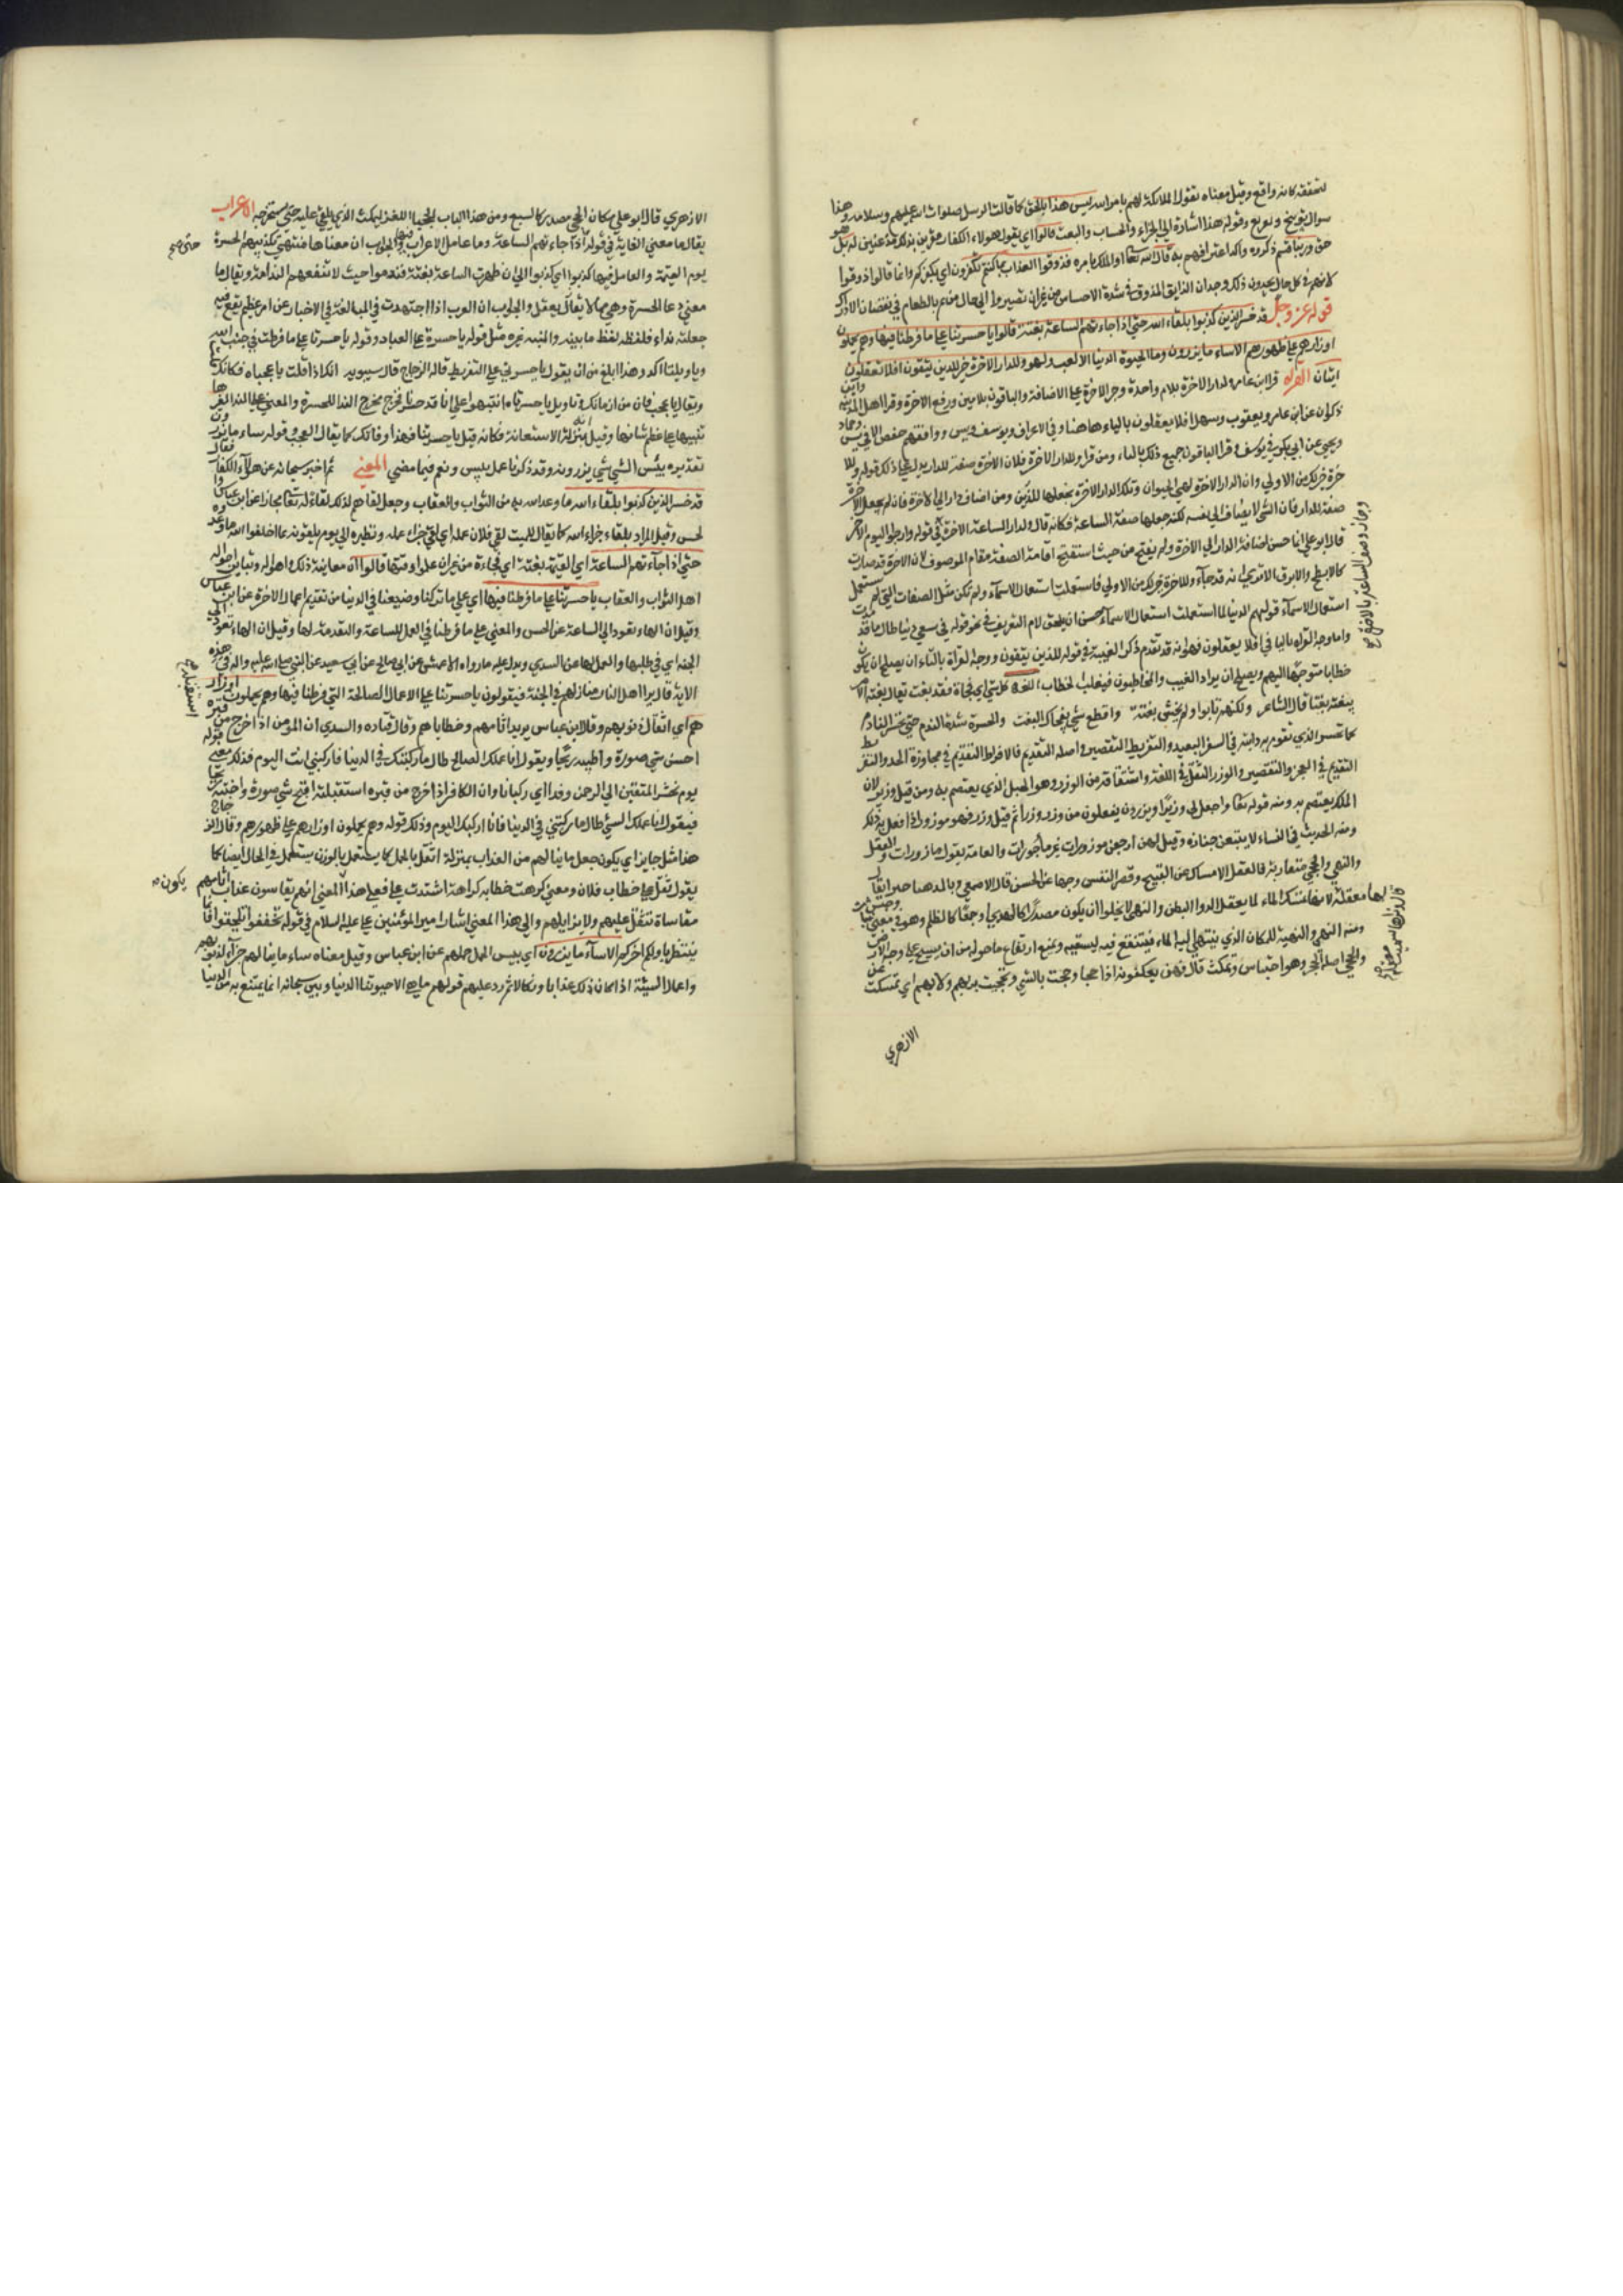 لتحققه كانه واقع وقيل معناه تقول الملائكة لهم بامر الله اليس هذا بالحق كما قالت الرسل صلوات الله عليهم وسلامه وهذا
سوال توبيخ وتقريع وقوله هذا اشارة الى الجزاء والحساب والبعث قالوا اي يقول هولاء الكفار مقرين بذلك مذعنين له بلى هو
حق وربنا قسم ذكروه واكدوا اعترافهم به قال الله تعالى او الملك بامره فذوقوا العذاب بما كنتم تكفرون اي بكفركم وانما قال ذوقوا
لانهم في كل حال يجدون ذلك وجدان الذايق المذوق في شدة الاحساس من غير ان تصيروا الى حال من يشم بالطعام في نقصان الادراك
قوله عز وجل قد خسر الذين كذبوا بلقاء الله حتى اذا جاءتهم الساعة بغتة قالوا يا حسرتنا على ما فرطنا فيها وهم يحملون
اوزارهم على ظهورهم الا ساء ما يزرون وما الحيوة الدنيا الا لعب ولهو وللدار الاخرة خير للذين يتقون افلا تعقلون
ايتان القراءة قرا ابن عامر ولدار الاخرة بلام واحدة وجر الاخرة على الاضافة والباقون بلامين ورفع الاخرة وقرا اهل المدينة وابن
ذكوان عن ابن عامر ويعقوب وسهل افلا تعقلون بالتاء هاهنا وفي الاعراف ويوسف ويس ووافقهم حفص الا في يس وحماد
ويحيى عن ابي بكر في يوسف وقرا الباقون جميع ذلك بالياء ومن قرا وللدار الاخرة فلان الاخرة صفة للدار يدل على ذلك قوله وللا
خرة خير لك من الاولى وان الدار الاخرة لهي الحيوان وتلك الدار الاخرة نجعلها للذين ومن اضاف دارا الى الاخرة فانه لم يجعل الاخرة
صفة للدار فان الشي لا يضاف الى نفسه لكنه جعلها صفة الساعة فكانه قال ولدار الساعة الاخرة في قوله وارجوا اليوم الاخر
قال ابو علي انما حسن اضافة الدار الى الاخرة ولم يقبح من حيث استقبح اقامة الصفة مقام الموصوف لان الاخرة قد صارت
كالابطح والابرق الا ترى انه قد جاء وللاخرة خير لك من الاولى فاستعملت استعمال الاسماء ولم تكن مثل الصفات التي لم تستعمل
استعمال الاسماء قولهم الدنيا لما استعملت استعمال الاسماء حسن ان يلحق لام التعريف في نحو قوله في سعي دنيا طال ما قد مدت
واما وجه القراءة بالياء في افلا يعقلون فهو انه قد تقدم ذكر الغيبة في قوله للذين يتقون ووجه القراة بالتاء ان يصلح ان يكون
خطابا متوجها اليهم ويصلح ان يراد الغيب والمخاطبون فيغلب الخطاب اللغة كل شي اي فجاة فقد بغت يقال بغته الامر
يبغته بغتا قال الشاعر ولكنهم باتوا ولم اخش بغتة وافظع شي حين يفجاك البغت والحسرة شدة الندم حتى يحسر النادم
كما تحسر الذي تقوم به دابته في السفر البعيد والتفريط التقصير واصله التقديم فالافراط التقديم في مجاوزة الحد والتفريط
التقديم في العجز والتقصير والوزر الثقل في اللغة واشتقاقه من الوزر وهو الجبل الذي يعتصم به ومن قيل وزير لان
الملك يعتصم به ومنه قوله تعالى واجعل لي وزيرا ويزرون يفعلون من وزر يزر وزرا ثم قيل وزر فهو موزور اذا فعل به ذلك
ومنه الحديث في النساء لا يتبعن جنازة وقيل لهن ارجعن موزورات غير ماجورات والعامة يقول مازورات والعقل
والنهي والحجي متقاربة فالعقل الامساك عن القبيح وقصر النفس وحبسها على الحسن قال الاصمعي وبالدهنا خبرا يقال
لها معقلة لانها تمسك الماء كما يعقل الدواء البطن والنهى لا يخلوا ان يكون مصدرا كالهدى او جمعا كالظلم وهو في معنى ثبات وحبس
ومنه النهي والنهية للمكان الذي ينتهي اليه الماء فيستنقع فيه لتسفله ويمنع ارتفاع ما حوله من ان يسيح على وجه الارض
والحجى اصله من الحجو وهو احتباس وتمكث قال فهن يعكفن به اذا حجا وحجت بالشي وتحجيت به يهمز ولا يهمز اي تمسكت عن
الازهري
وجاز وصف الساعة بالاخرة صح
الازهري قال ابو علي وكان الحجى مصدر كالشبع ومن هذا الباب الحجيا اللغز لتمكث الذي يلقى عليه حتى يستخرجه الاعراب
يقال ما معنى الغاية في قوله اذا جاءتهم الساعة وما عامل الاعراب فيها والجواب ان معناها منتهى تكذيبهم الحسرة
حتى صح
يوم القيمة والعامل فيها كذبوا اي كذبوا الى ان ظهرت الساعة بغتة فندموا حيث لا تنفعهم الندامة ويقال ما
معنى دعا الحسرة وهي مما لا يعقل والجواب ان العرب اذا اجتهدت في المبالغة في الاخبار عن امر عظيم يقع فيه
جعلته نداء فلفظه لفظ ما ينبه والمنبه غيره مثل قوله يا حسرة على العباد وقوله يا حسرتا على ما فرطت في جنب الله
ويا ويلتا االد وهذا ابلغ من ان يقول يا حسرتي على التفريط قاله الزجاج قال سيبويه انك اذا قلت يا عجباه فكانك
ويقال يا عجب فان من ازمانك وتاويل يا حسرتاه انتبهوا على انا قد خسرنا فخرج مخرج الندا للحسرة والمعنى على النداء لغيرها
تنبيها على عظم شانها وقيل انه بمنزلة الاستعانة فكانه قيل يا حسرتنا فهذا وقاتك كما يقال العجب وقوله ساء ما يزرون
تقديره بئس الشي شي يزرونه وقد ذكرنا عمل بيس ونعم فيما مضى المعنى ثم اخبر سبحانه عن هولاء الكفار فقال
قد خسر الذين كذبوا بلقاء الله ما وعد الله به من الثواب والعقاب وجعل لقاءهم لذلك لقاء له تعالى مجازا عن ابن عباس
والحسن وقيل المراد بلقاء جزاء الله كما يقال للميت لقي فلان عمله اي لقي جزاء عمله ونظيره الى يوم يلقونه بما اخلفوا الله ما وعدوه
حتى اذا جاءتهم الساعة اي القيمة بغتة اي فجاءة من غير ان علموا وقتها قالوا ان معاينة ذلك واهواله وتباين احوال
اهل الثواب والعقاب يا حسرتنا على ما فرطنا فيها اي على ما تركنا وضيعنا في الدنيا من تقديم اعمال الاخرة عن ابن عباس
وقيل ان الهاء يعود الى الساعة عن الحسن والمعنى على ما فرطنا في العمل للساعة والتقدمة لها وقيل ان الهاء تعود الى
الجنة اي في طلبها والعمل لها عن السدي ويدل عليه ما رواه الاعمش عن ابي صالح عن ابي سعيد عن النبي صلى الله عليه واله في هذه
الاية قال يرا اهل النار منازلهم في الجنة فيقولون يا حسرتنا على الاعمال الصالحة التي فرطنا فيها وهم يحملون اوزار
هم اي اثقال ذنوبهم وقال ابن عباس يريد اثامهم وخطاياهم وقال قتاده والسدي ان المومن اذا خرج من قبره
استقبله صح
احسن شي صورة واطيبه ريحا ويقول انا عملك الصالح طال ما ركبتك في الدنيا فاركبني انت اليوم فذلك معنى قوله
يوم نحشر المتقين الى الرحمن وفدا اي ركبانا وان الكافر اذا خرج من قبره استقبلته اقبح شي صورة واخبثه ريحا
فيقول انا عملك السيئ طال ما ركبتني في الدنيا فانا اركبك اليوم وذلك قوله وهم يحملون اوزارهم على ظهورهم وقال الزجاج
هذا مثل جايز اي يكون جعل ما ينالهم من العذاب بمنزلة اثقل بالحمل كما يستعمل بالوزن يستعمل في الحال ايضا كما
يقول ثقل علي خطاب فلان ومعنى كرهت خطابه كراهة اشتدت علي فعلى هذا المعنى انهم يقاسون عذاب اثامهم
يكون
مقاساة تثقل عليهم ولا يزايلهم والى هذا المعنى اشار امير المؤمنين علي عليه السلام في قوله تخففوا تلحقوا فانما
ينتظر باولكم اخركم الا ساء ما يزرون اي بيس الحمل حملهم عن ابن عباس وقيل معناه ساء ما ينالهم جزاء لذنوبهم
واعمالهم السيئة اذا كان ذلك عذابا ونكالا ثم رد عليهم قولهم ما هي الا حيوتنا الدنيا وبين سبحانه انما يتمتع به من الدنيا